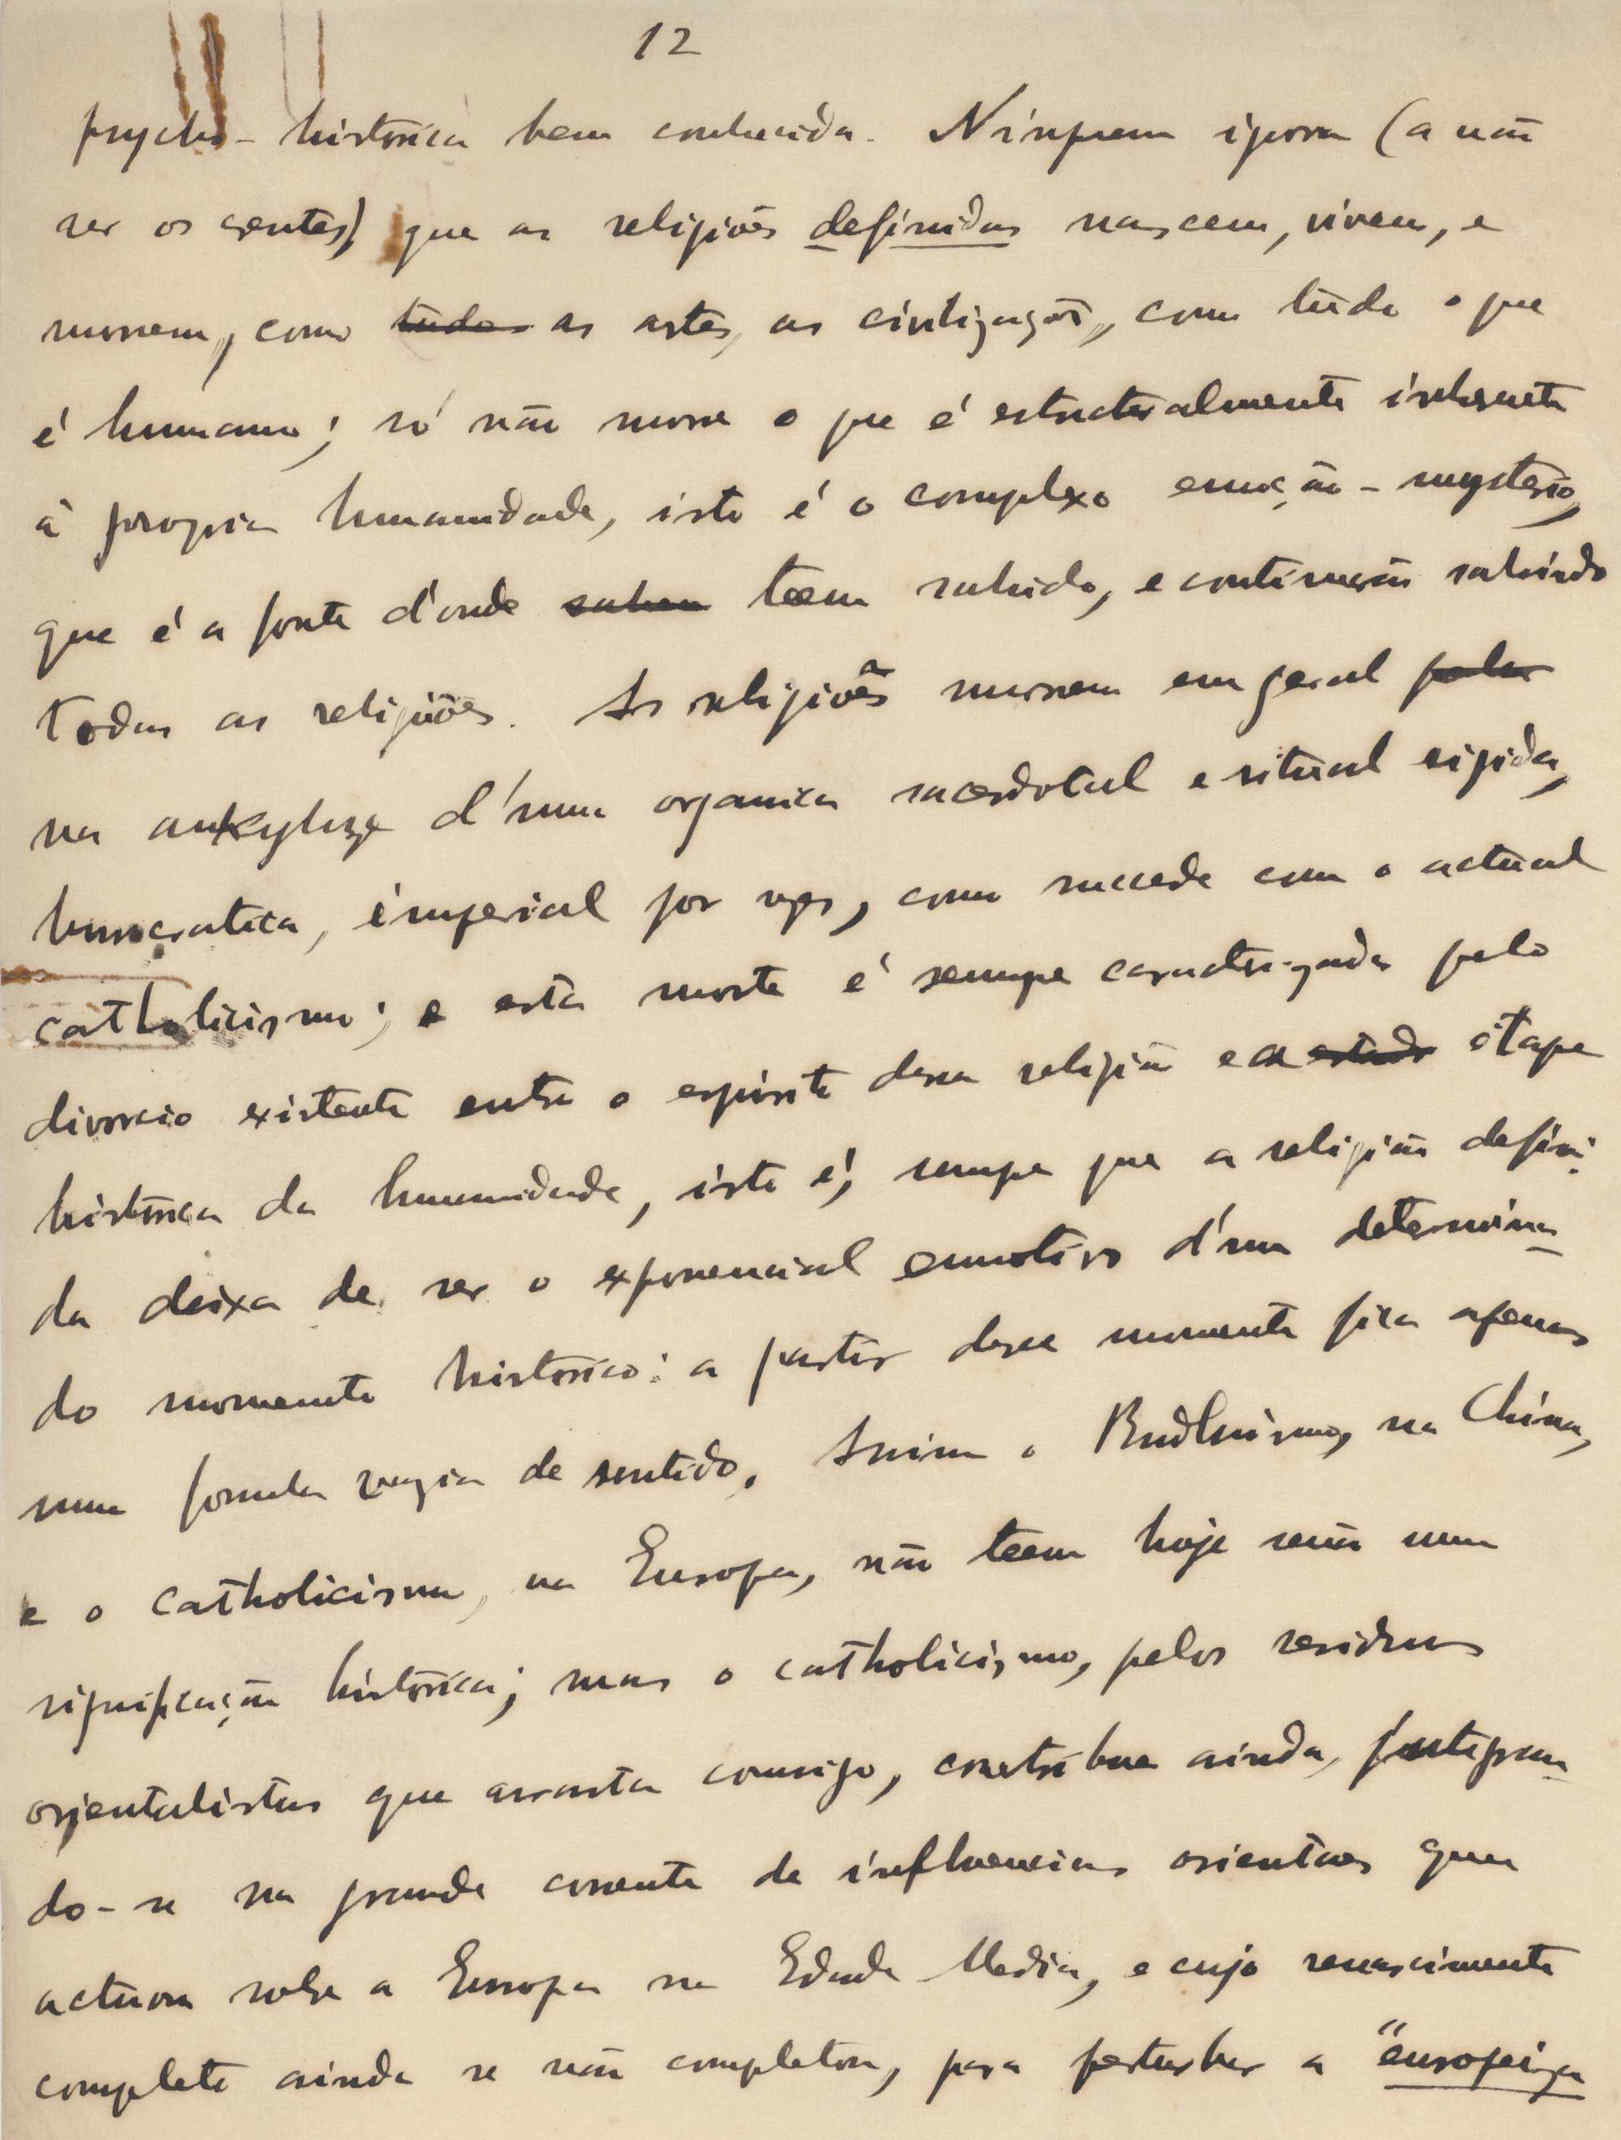 12
psycho-historica bem conhecida. Ninguem ignora (a não
ser os crentes) que as religiões definidas nascem, vivem, e
morrem, como todas as artes, as civilizações, como tudo o que
é humano; só não morre o que é estructuralmente inherente
á propria humanidade, isto é o complexo emoção-mysterio,
que é a fonte d'onde sahem teem sahido, e continuarão sahindo
todas as religiões. As religiões morrem em geral pela
na ankyloze d'uma organica sacerdotal e ritual rigida,
burocratica, imperial por vezes, como succede com o actual
catholicismo; e esta morte é sempre caracterizada pelo
divorcio existente entre o espirito dessa religião e a estado étape
historica da humanidade, isto é, sempre que a religião defini-
da deixa de ser o exponencial emotivo d'um determina-
do momento historico: a partir desse momento fica apenas
uma formula vazia de sentido. Assim o Budhismo, na China,
e o catholicismo, na Europa, não teem hoje senão uma
significação historica; mas o catholicismo, pelos residuos
orientalistas que arrasta comsigo, contribue ainda, integran-
do-se na grande corrente de influencias orientaes que
actuou sobre a Europa na Edade Media, e cujo renascimento
completo ainda se não completou, para perturbar a "europeiza